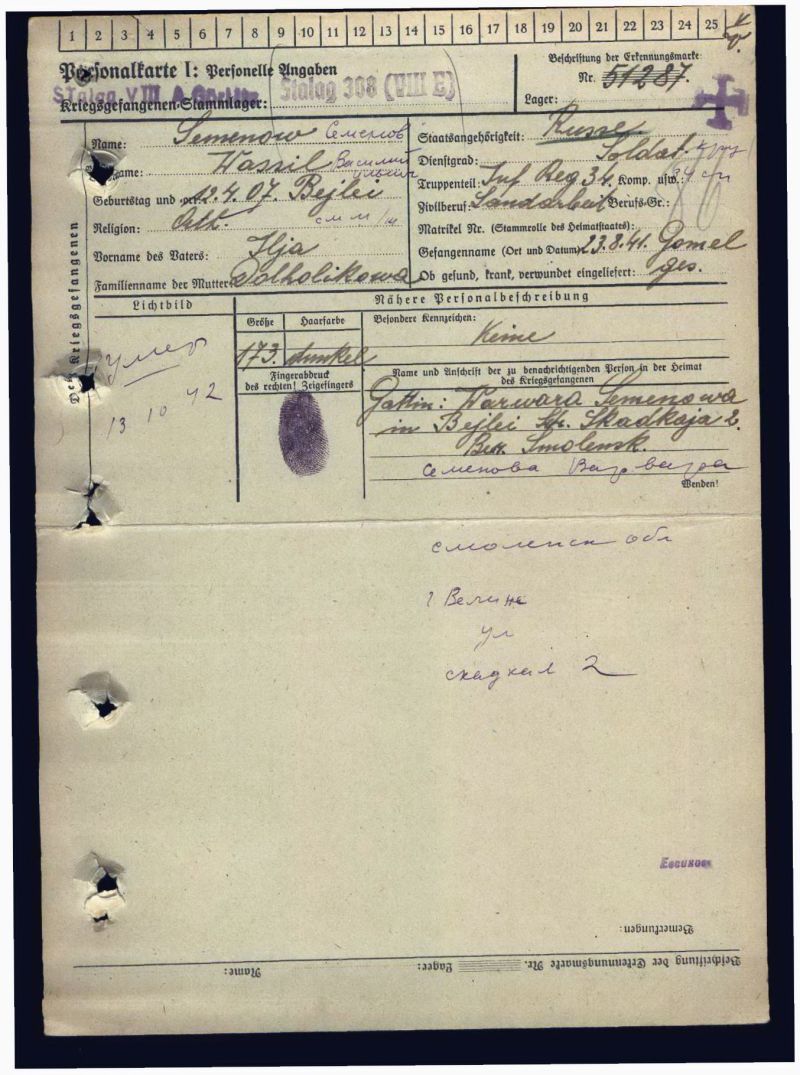 1 2 3 4 5 6 7 8 9 10 11 12 13 14 15 16 17 18 19 20 21 22 23 24 25
Personalkarte I: Personelle Angaben
Beschriftung der Erkennungsmarke
Nr. 51287.
Stalag VIII A Görlitz
Stalag 308 (VIII E)
Kriegsgefangenen-Stammlager:
Lager:
Des Kriegsgefangenen
Name: Semenow Семенов
Staatsangehörigkeit: Russe
Vorname: Wassil Василий
Dienstgrad: Soldat
Truppenteil: Inf Reg 34. Komp. usw.:
Geburtstag und -ort: 12.4.07. Bejlei
Zivilberuf: Landarbeit Berufs-Gr.:
Religion: Orth.
Matrikel Nr. (Stammrolle des Heimatstaates):
Vorname des Vaters: Ilja
Gefangenname (Ort und Datum): 23.8.41. Gomel
Familienname der Mutter: Dolholikowa
Ob gesund, krank, verwundet eingeliefert: ges.
Lichtbild
Nähere Personalbeschreibung
Größe
Haarfarbe
Besondere Kennzeichen:
173. dunkel
Keine
умер
13 10 42
Fingerabdruck
des rechten! Zeigefingers
Name und Anschrift der zu benachrichtigenden Person in der Heimat
des Kriegsgefangenen
Gattin: Warwara Semenowa
in Bejlei Str. Skadkaja 2.
Bez. Smolensk.
Семенова Варвара
Wenden!
смоленск обл
г Велиж
ул
скадкая 2
Bemerkungen:
Beschriftung der Erkennungsmarke Nr.
Lager:
Name: